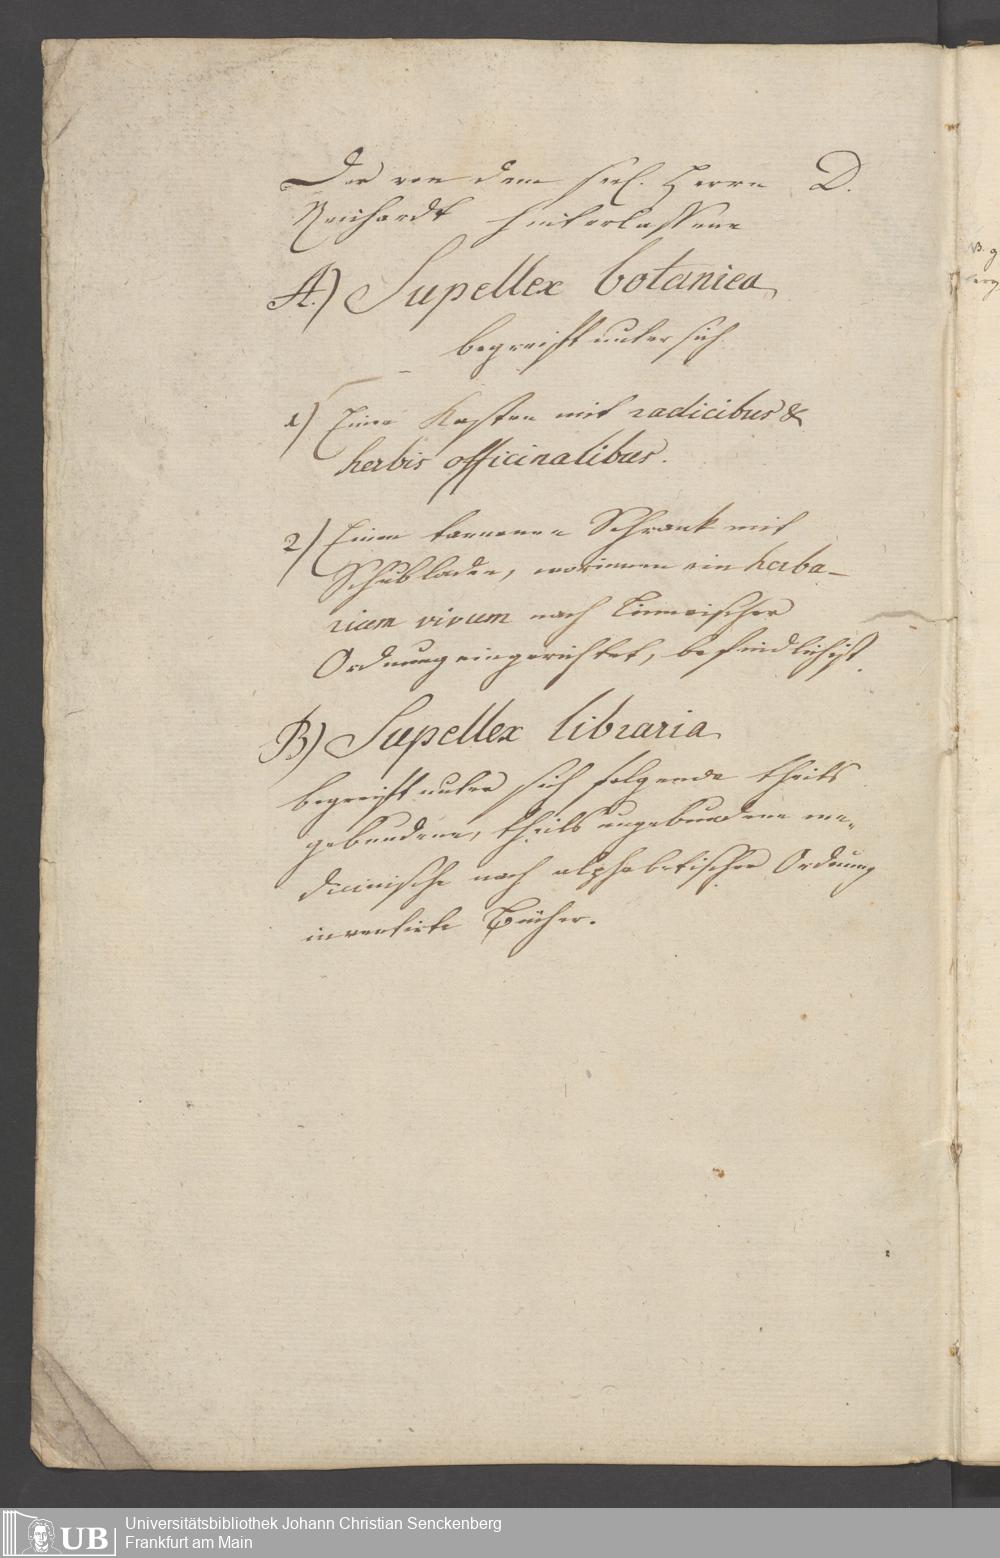 Der von dem seel. Herrn D.
Reichardt hinterlassene
A.) Supellex botanica
begreifft unter sich
1) Einen Kasten mit radicibus &
herbis officinalibus.
2) Einen tannenen Schrank mit
Schubladen, worinnen ein herba-
rium vivum nach Linneischer
Ordnung eingerichtet, befindlich ist.
B) Supellex libraria
begreifft unter sich folgende theils
gebundene, theils ungebundene me-
dicinische nach alphabetischer Ordnung
inventirte Bücher.
UB Universitätsbibliothek Johann Christian Senckenberg
Frankfurt am Main